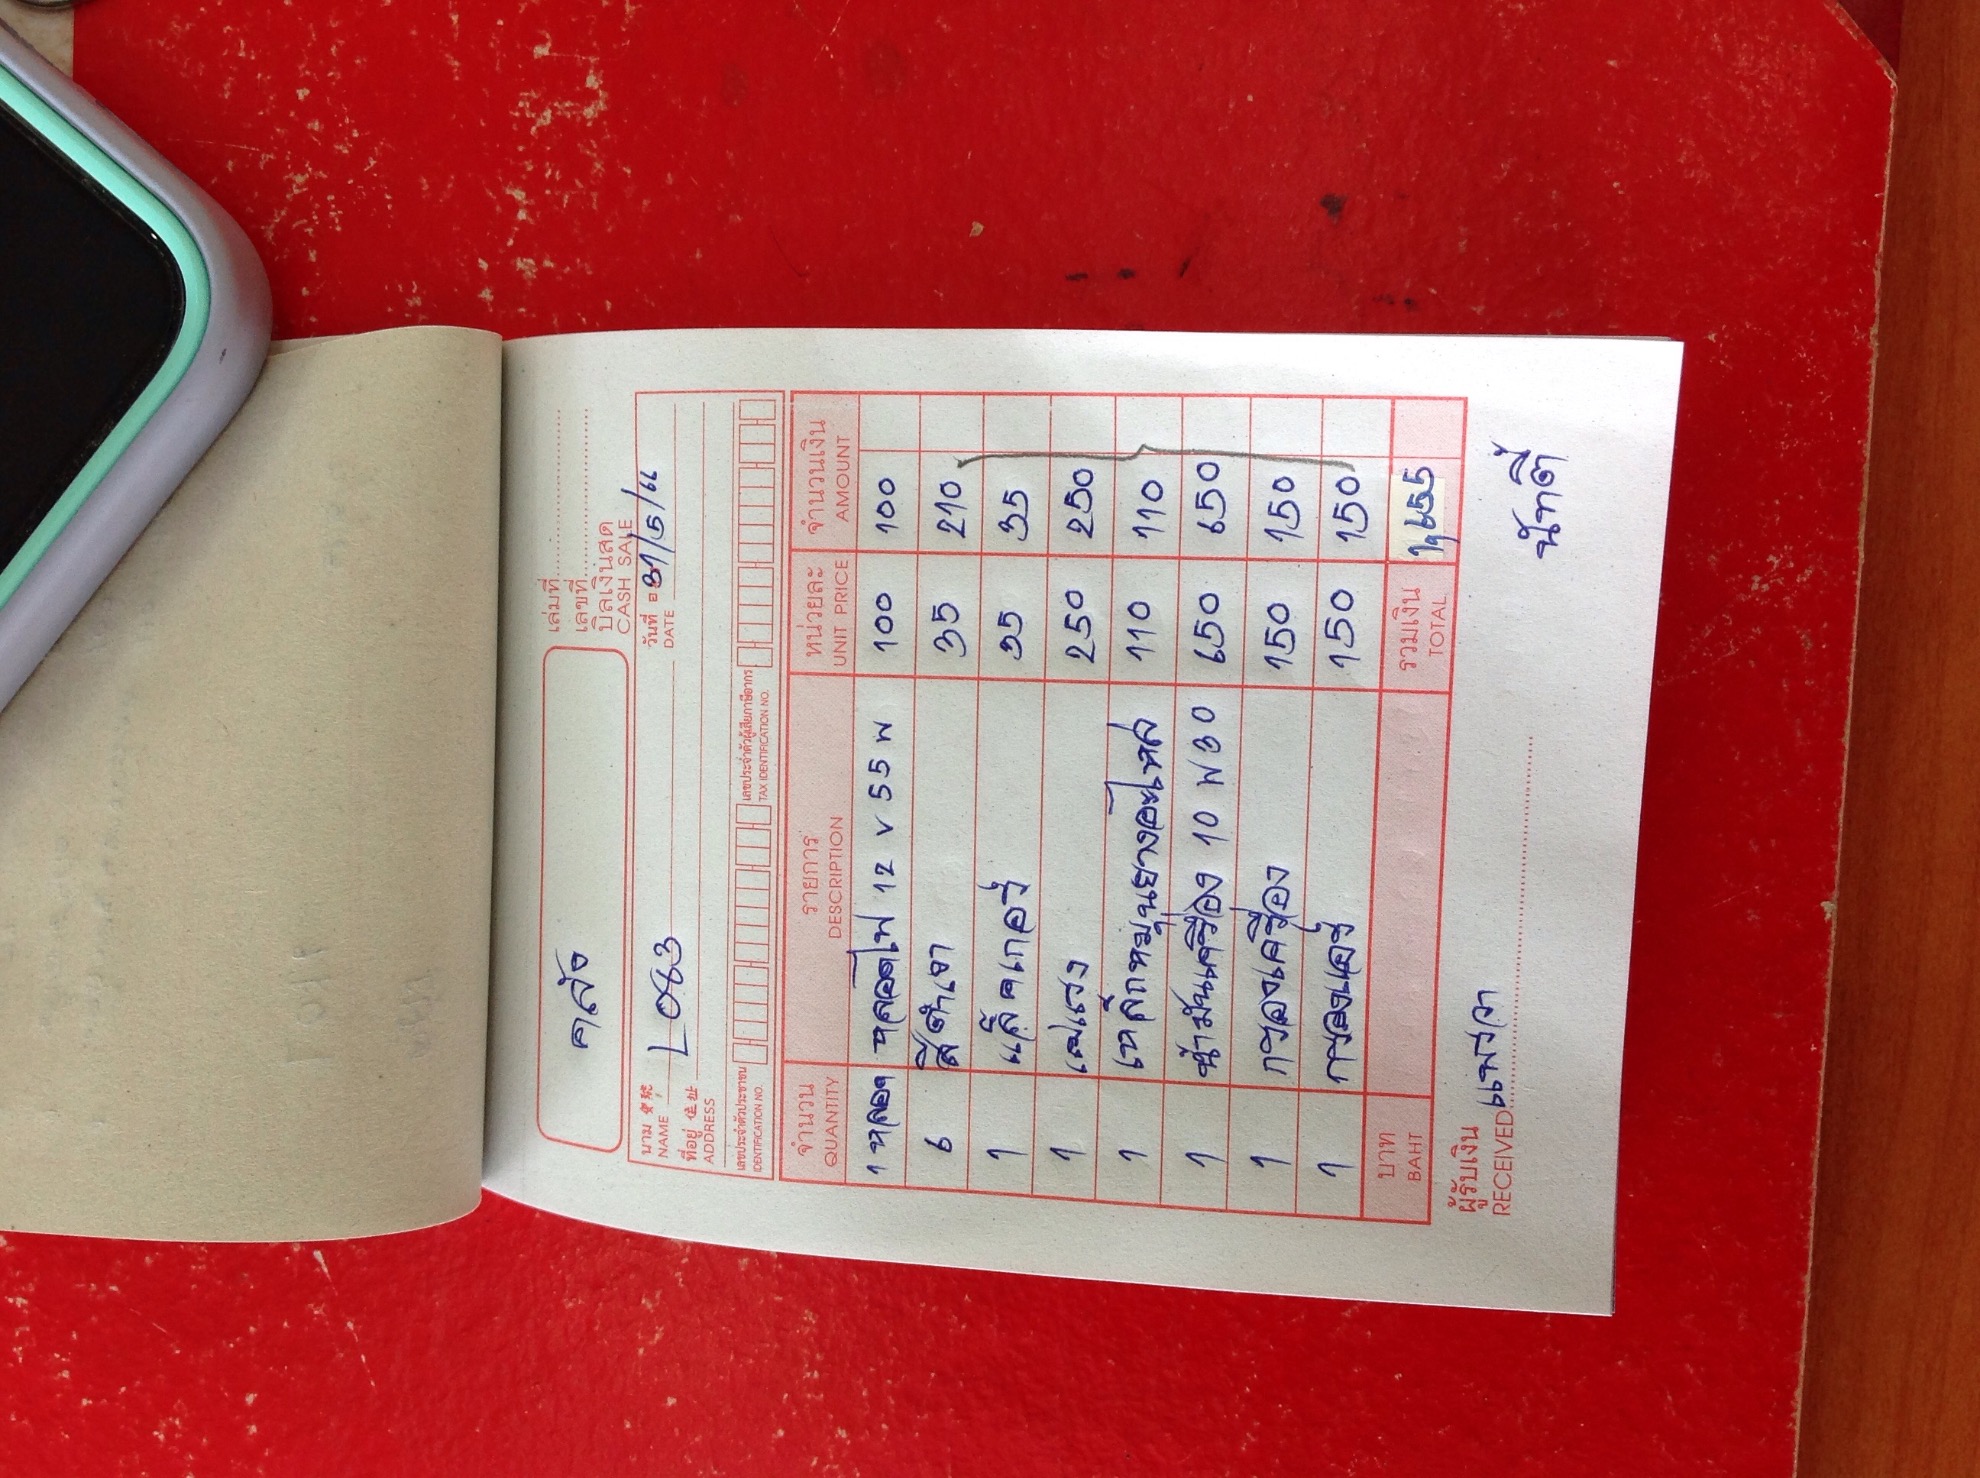 คลัง
เล่มที่
เลขที่
บิลเงินสด
CASH SALE
นาม 宝號 L083 วันที่ 31/5/66
NAME DATE
ที่อยู่ 住址
ADDRESS
เลขประจำตัวประชาชน เลขประจำตัวผู้เสียภาษีอากร
IDENTIFICATION NO. TAX IDENTIFICATION NO.
จำนวน รายการ หน่วยละ จำนวนเงิน
QUANTITY DESCRIPTION UNIT PRICE AMOUNT
1 หลอด หลอดไฟ 12 V 55 W 100 100
6 สีดำเงา 35 210
1 แล็คเกอร์ 35 35
1 250 250
1 เหล็กหมุนยางอะไหล่ 110 110
1 น้ำมันเครื่อง 10 W 30 650 650
1 กรองเครื่อง 150 150
1 กรองแอร์ 150 150
บาท รวมเงิน 1,655
BAHT TOTAL
ผู้รับเงิน
RECEIVED แพรวา